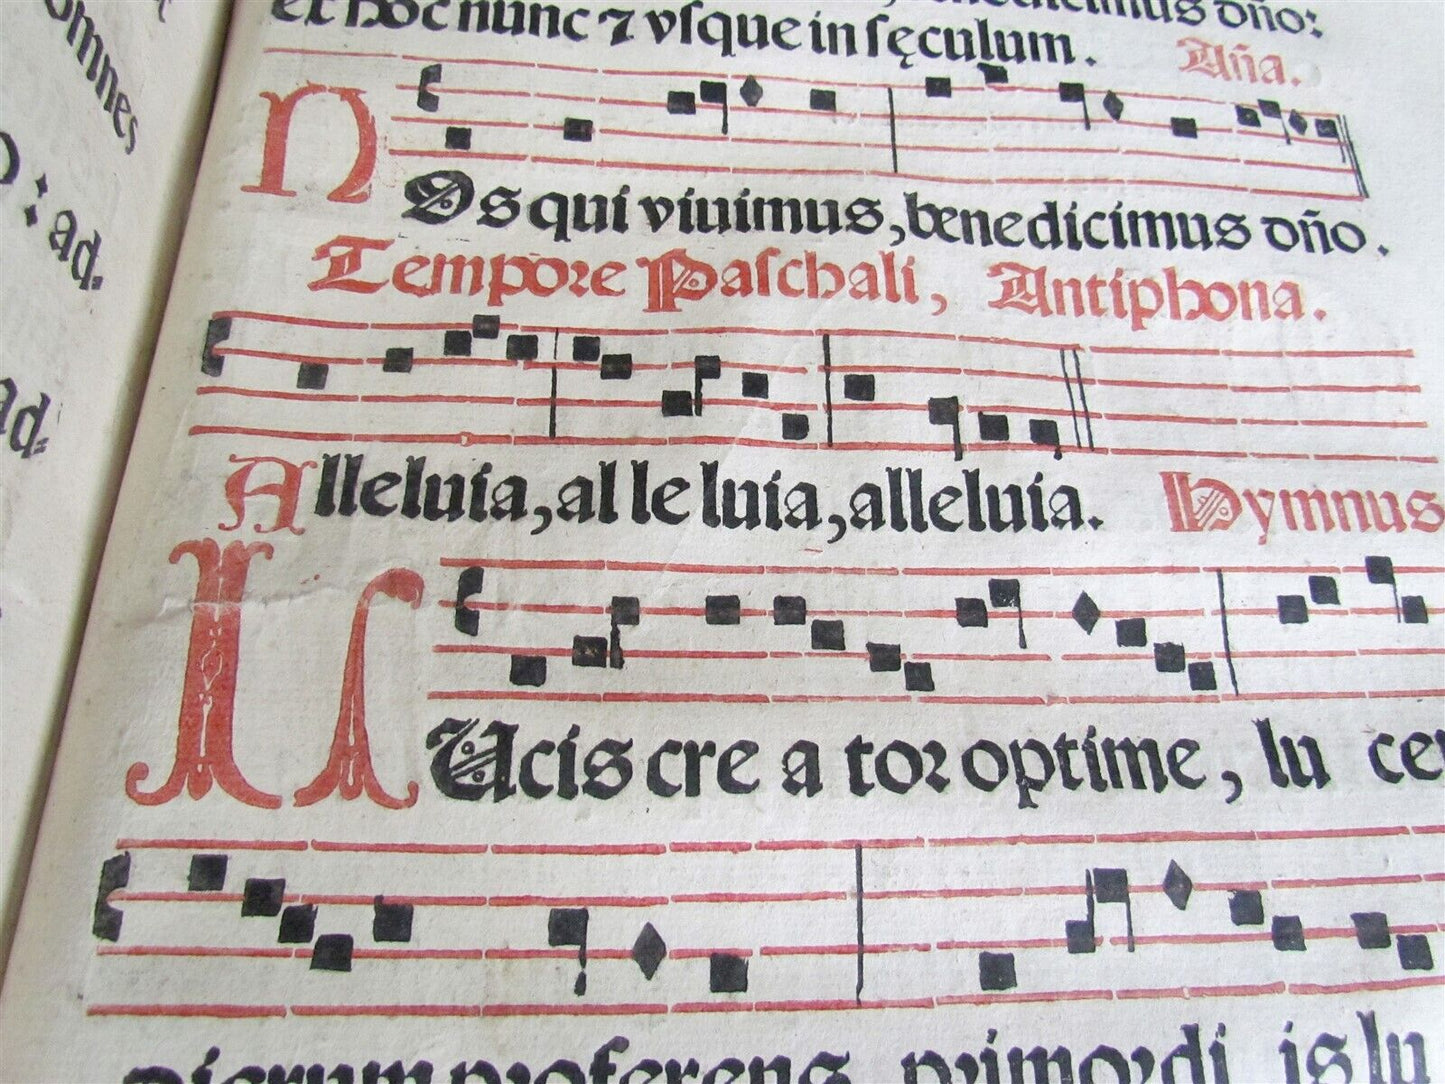 omnes
: ad.
ad.
benedicimus dño:
et hoc nunc ⁊ vſque in ſęculum. Aña.
NOs qui viuimus, benedicimus dño.
Tempore Paſchali, Antiphona.
Alleluia, al le luia, alleluia. Hymnus
LUcis cre a toꝛ optime, lu cem
dierum pꝛoferens, pꝛimoꝛdi is lu